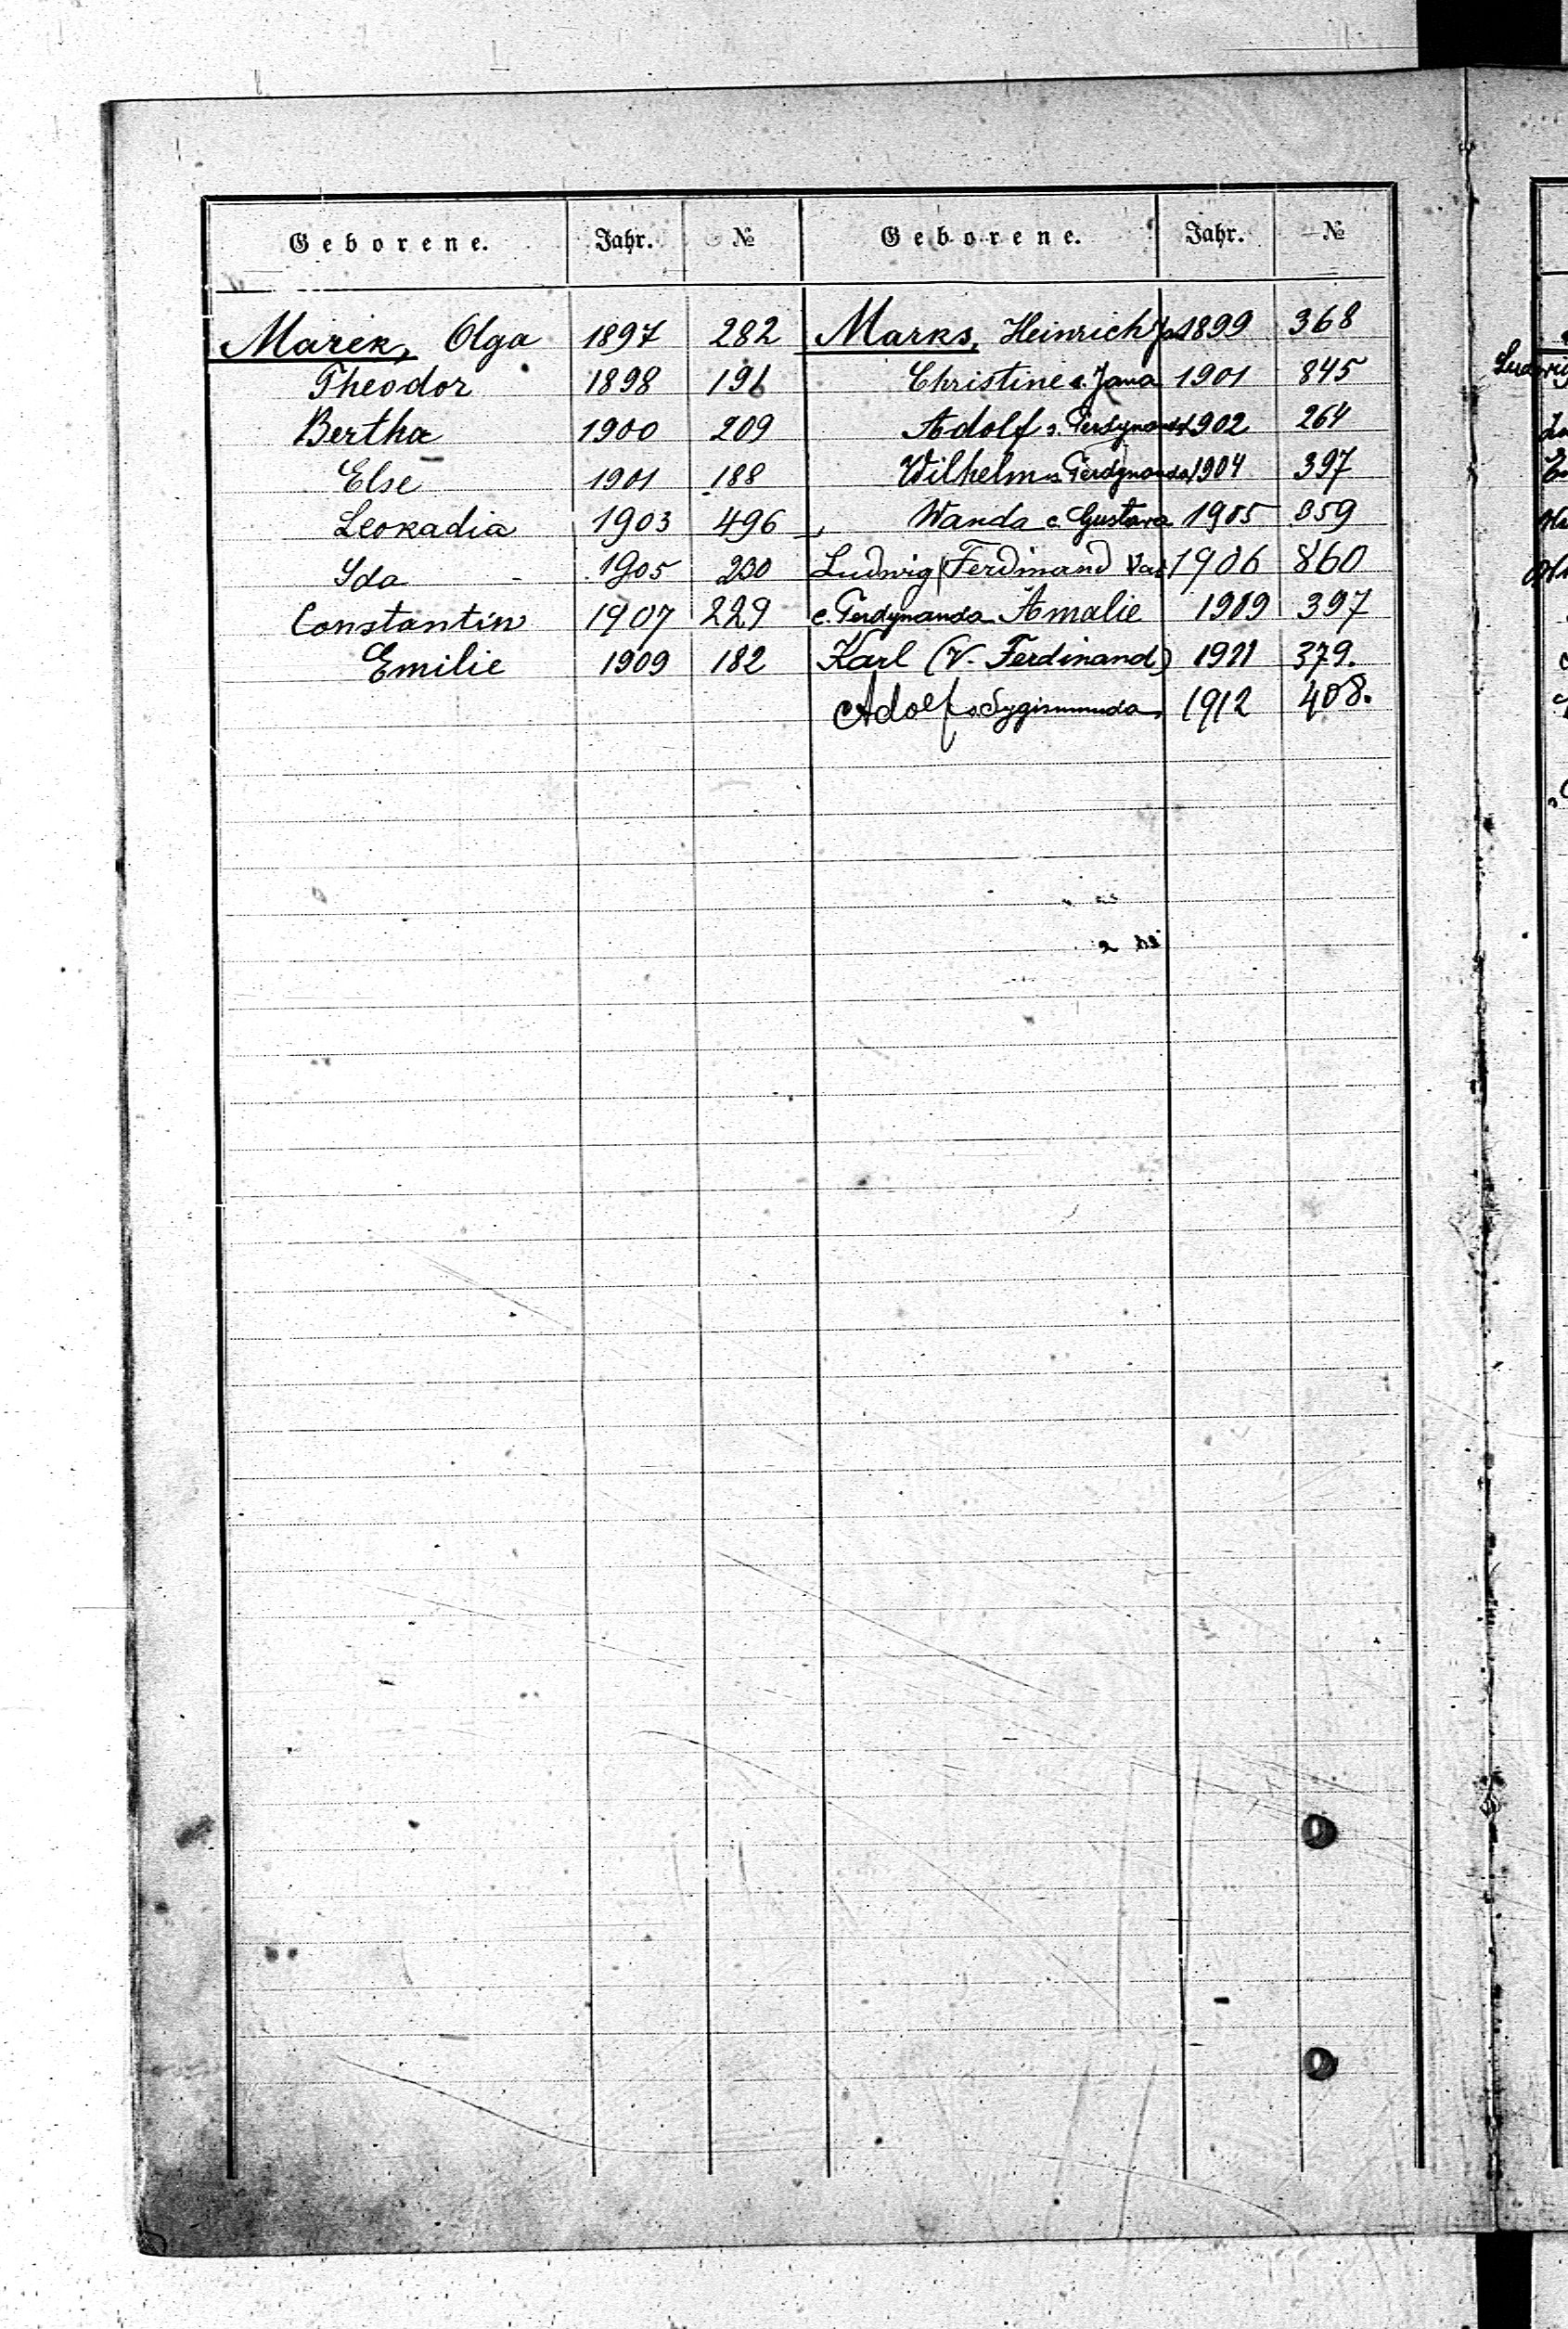 Geborene. Jahr. № Geborene. Jahr. №
Marek, Olga 1897 282
Theodor 1898 191
Bertha 1900 209
Else 1901 188
Leokadia 1903 496
Ida 1905 230
Constantin 1907 229
Emilie 1909 182
Marks, Heinrich 1899 368
Christine c. Jana 1901 845
Adolf s. Ferdynanda 1902 264
Wilhelm s. Ferdynanda 1904 397
Wanda c. Gustava 1905 359
Ludwig (Ferdinand Vat 1906 860
c. Ferdynanda Amalie 1909 397
Karl (V. Ferdinand) 1911 379.
Adolf s. Sygismunda 1912 408.
Ludwig